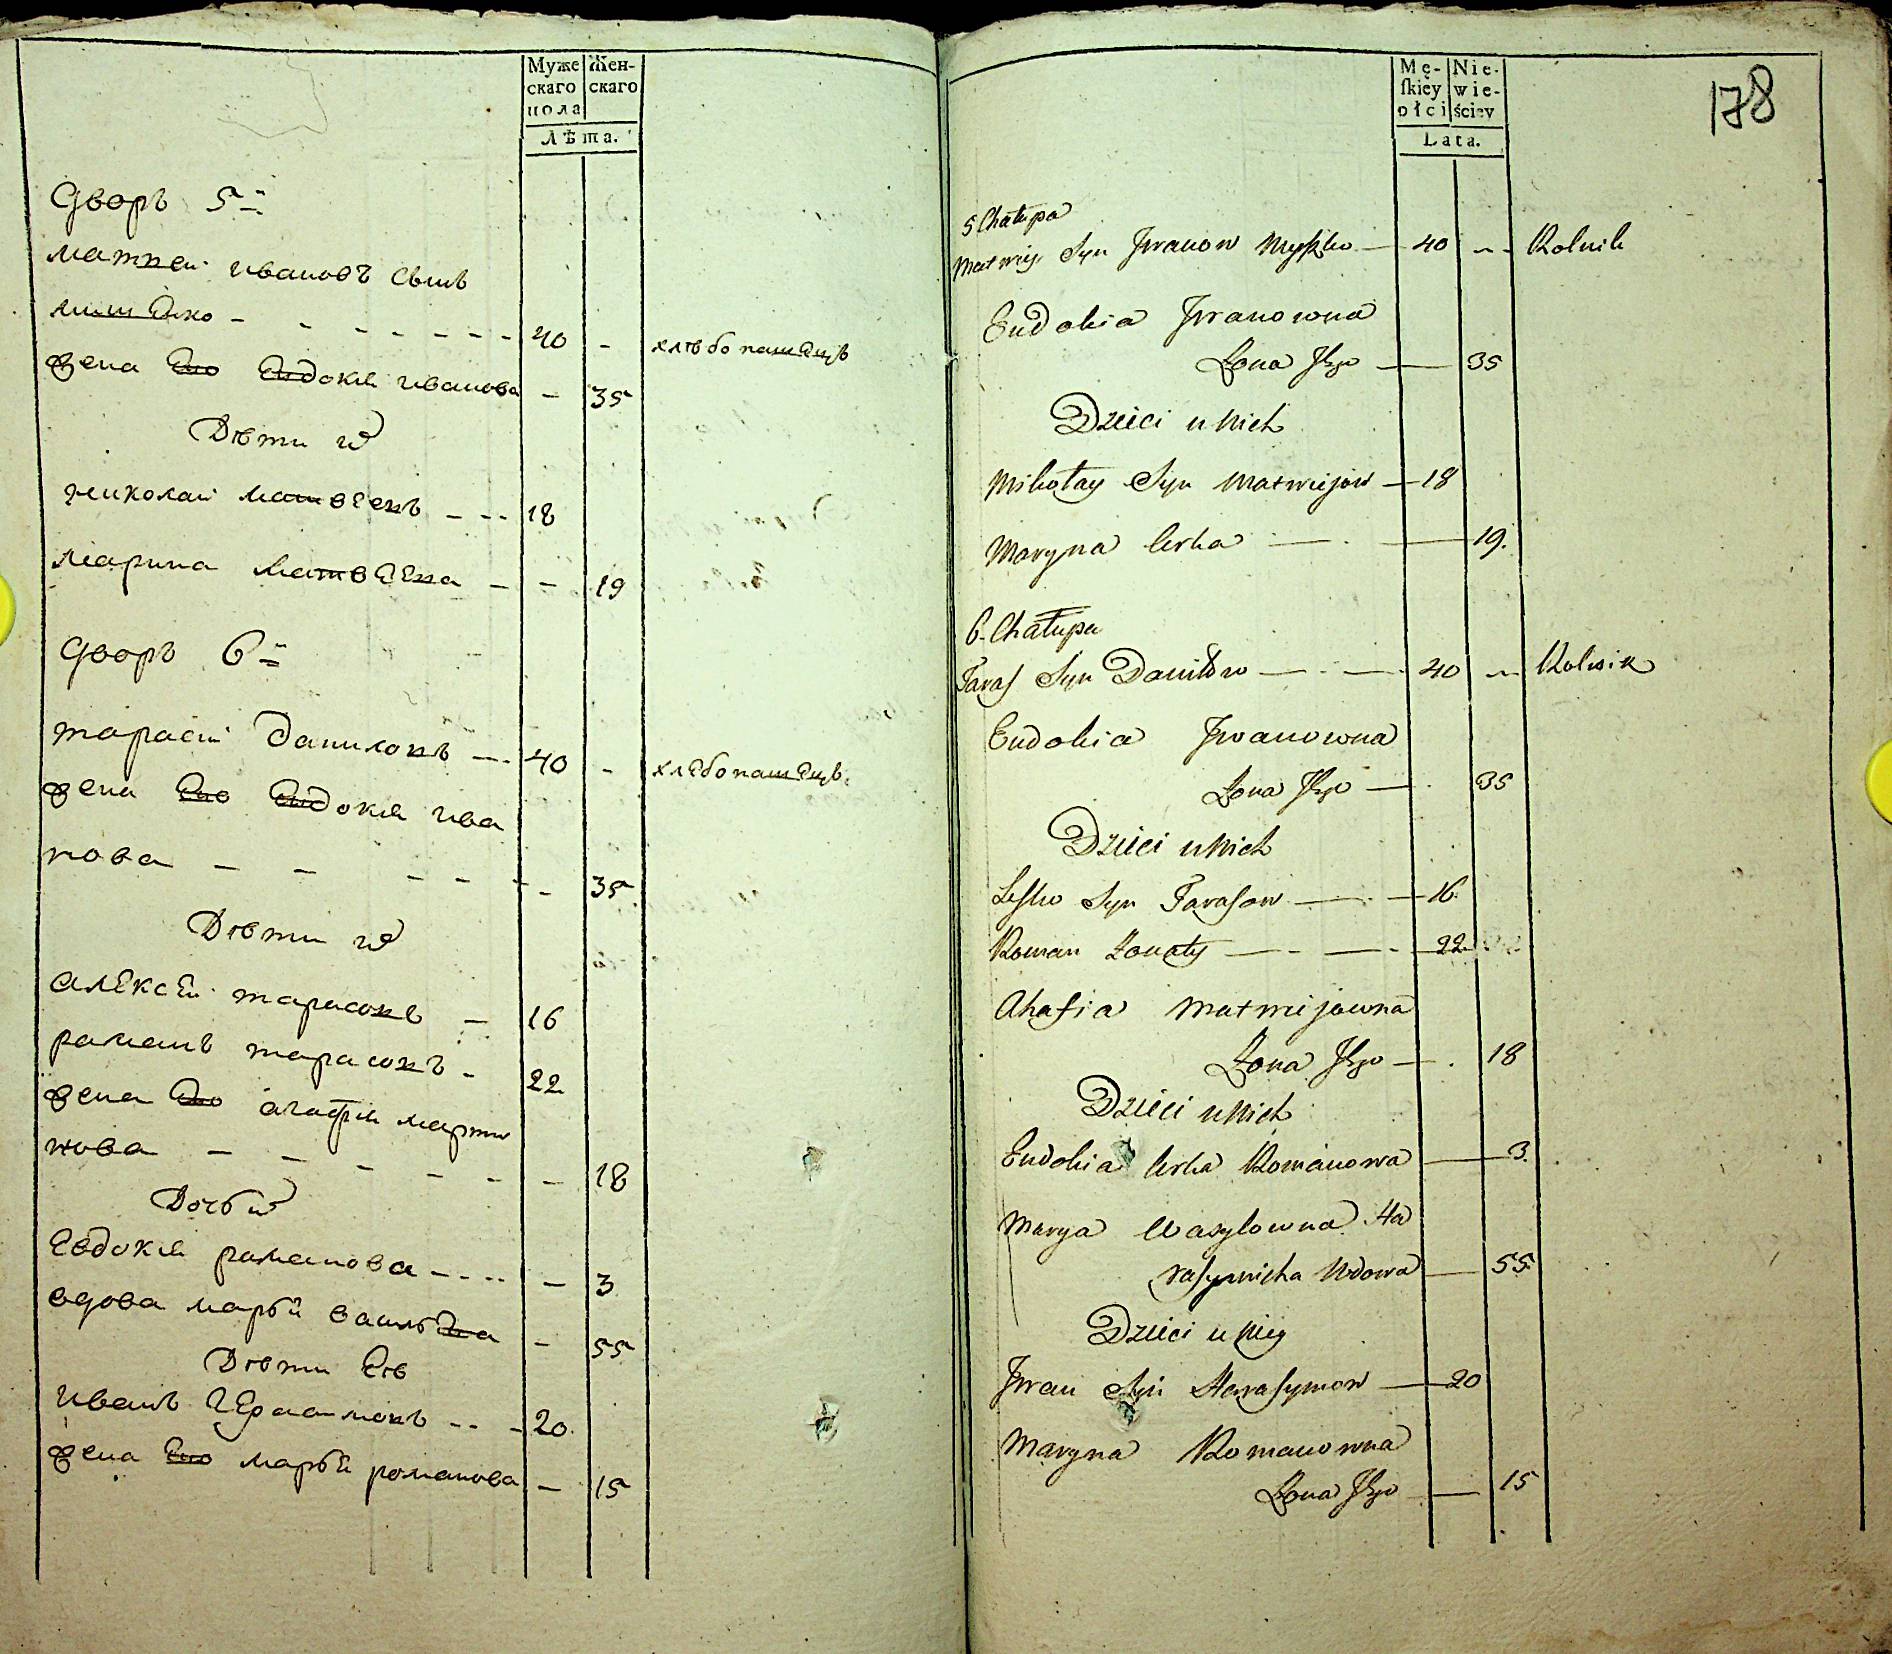 Муже
скаго
пола
Жен-
скаго
Лѣта.
дворъ 5й
матвей ивановъ сынъ
мишенко - - - - - - - 40 -
хлѣбопашецъ
жена ево евдокия иванова - 35
Дѣти их
николай матвеевъ - - - 18
марина матвеева - - 19
дворъ 6й
тарасий даниловъ - - 40 -
хлебопашецъ.
жена ево евдокия ива
нова - - - - - - 35
Дѣти их
алексей тарасовъ - 16
раманъ тарасовъ - 22
жена ево агафия марти
нова - - - - - - 18
Дочь их
евдокия раманова - - - - - 3
вдова марья васильева - 55
Дѣти Еѣ
иванъ герасимовъ - - - 20
жена ево марья романова - 15
Mę-
skiey
płci
Nie-
wie-
ściey
Lata.
178
5 Chałupa
Matwiy Syn Iwanow — 40 — Rolnik
Eudokia Iwanowna
Żona Jego — 35
Dzieci u Nich
Mikołay Syn Matwiejow — 18
Maryna Corka — . — 19.
6. Chałupa
Taras Syn Daniłow — . — 40 — Rolnik
Eudokia Iwanowna
Żona Jego — . 35
Dzieci u Nich
Lesko Syn Tarasow — . — 16.
Roman Żonaty — . — . 22
Ahafia Matwiejowna
Żona Jego — . 18
Dzieci u Nich
Eudokia Corka Romanowa — 3.
Marya Wasylowna Ha
rasymicha Wdowa — 55.
Dzieci u Niey
Iwan Syn Harasymow — 20
Maryna Romanowna
Żona Jego — 15